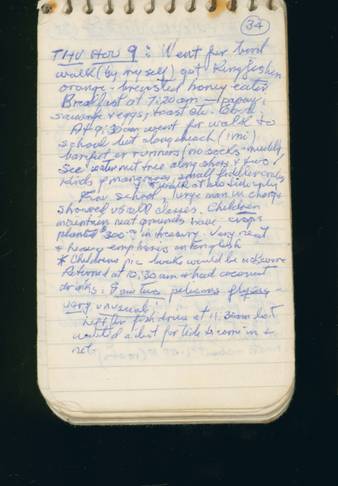 34
THU Nov 9: Went for bird
walk (by myself) got Kingfisher
orange-breasted honey eater
Breakfast at 7:20 am - papay,
sausage & eggs, toast etc.
At 9:30 am went for walk to
school but along beach (1 mi)
barefoot or runners (no socks - muddy
See water nut tree along shore & two
kinds of mangroves, small fiddler crabs
school, large man in charge
showed us all classes. Children
maintain neat grounds have crops
planted $300.00 in treasury. Very neat
& heavy emphasis on English
* Childrens pic books would be welcome
Returned at 10:30 am & had coconut
drinks. Saw two pelicans flying -
very unusual!
Left for fish drive at 11:30 am but
waited a bit for tide to come in &
net.